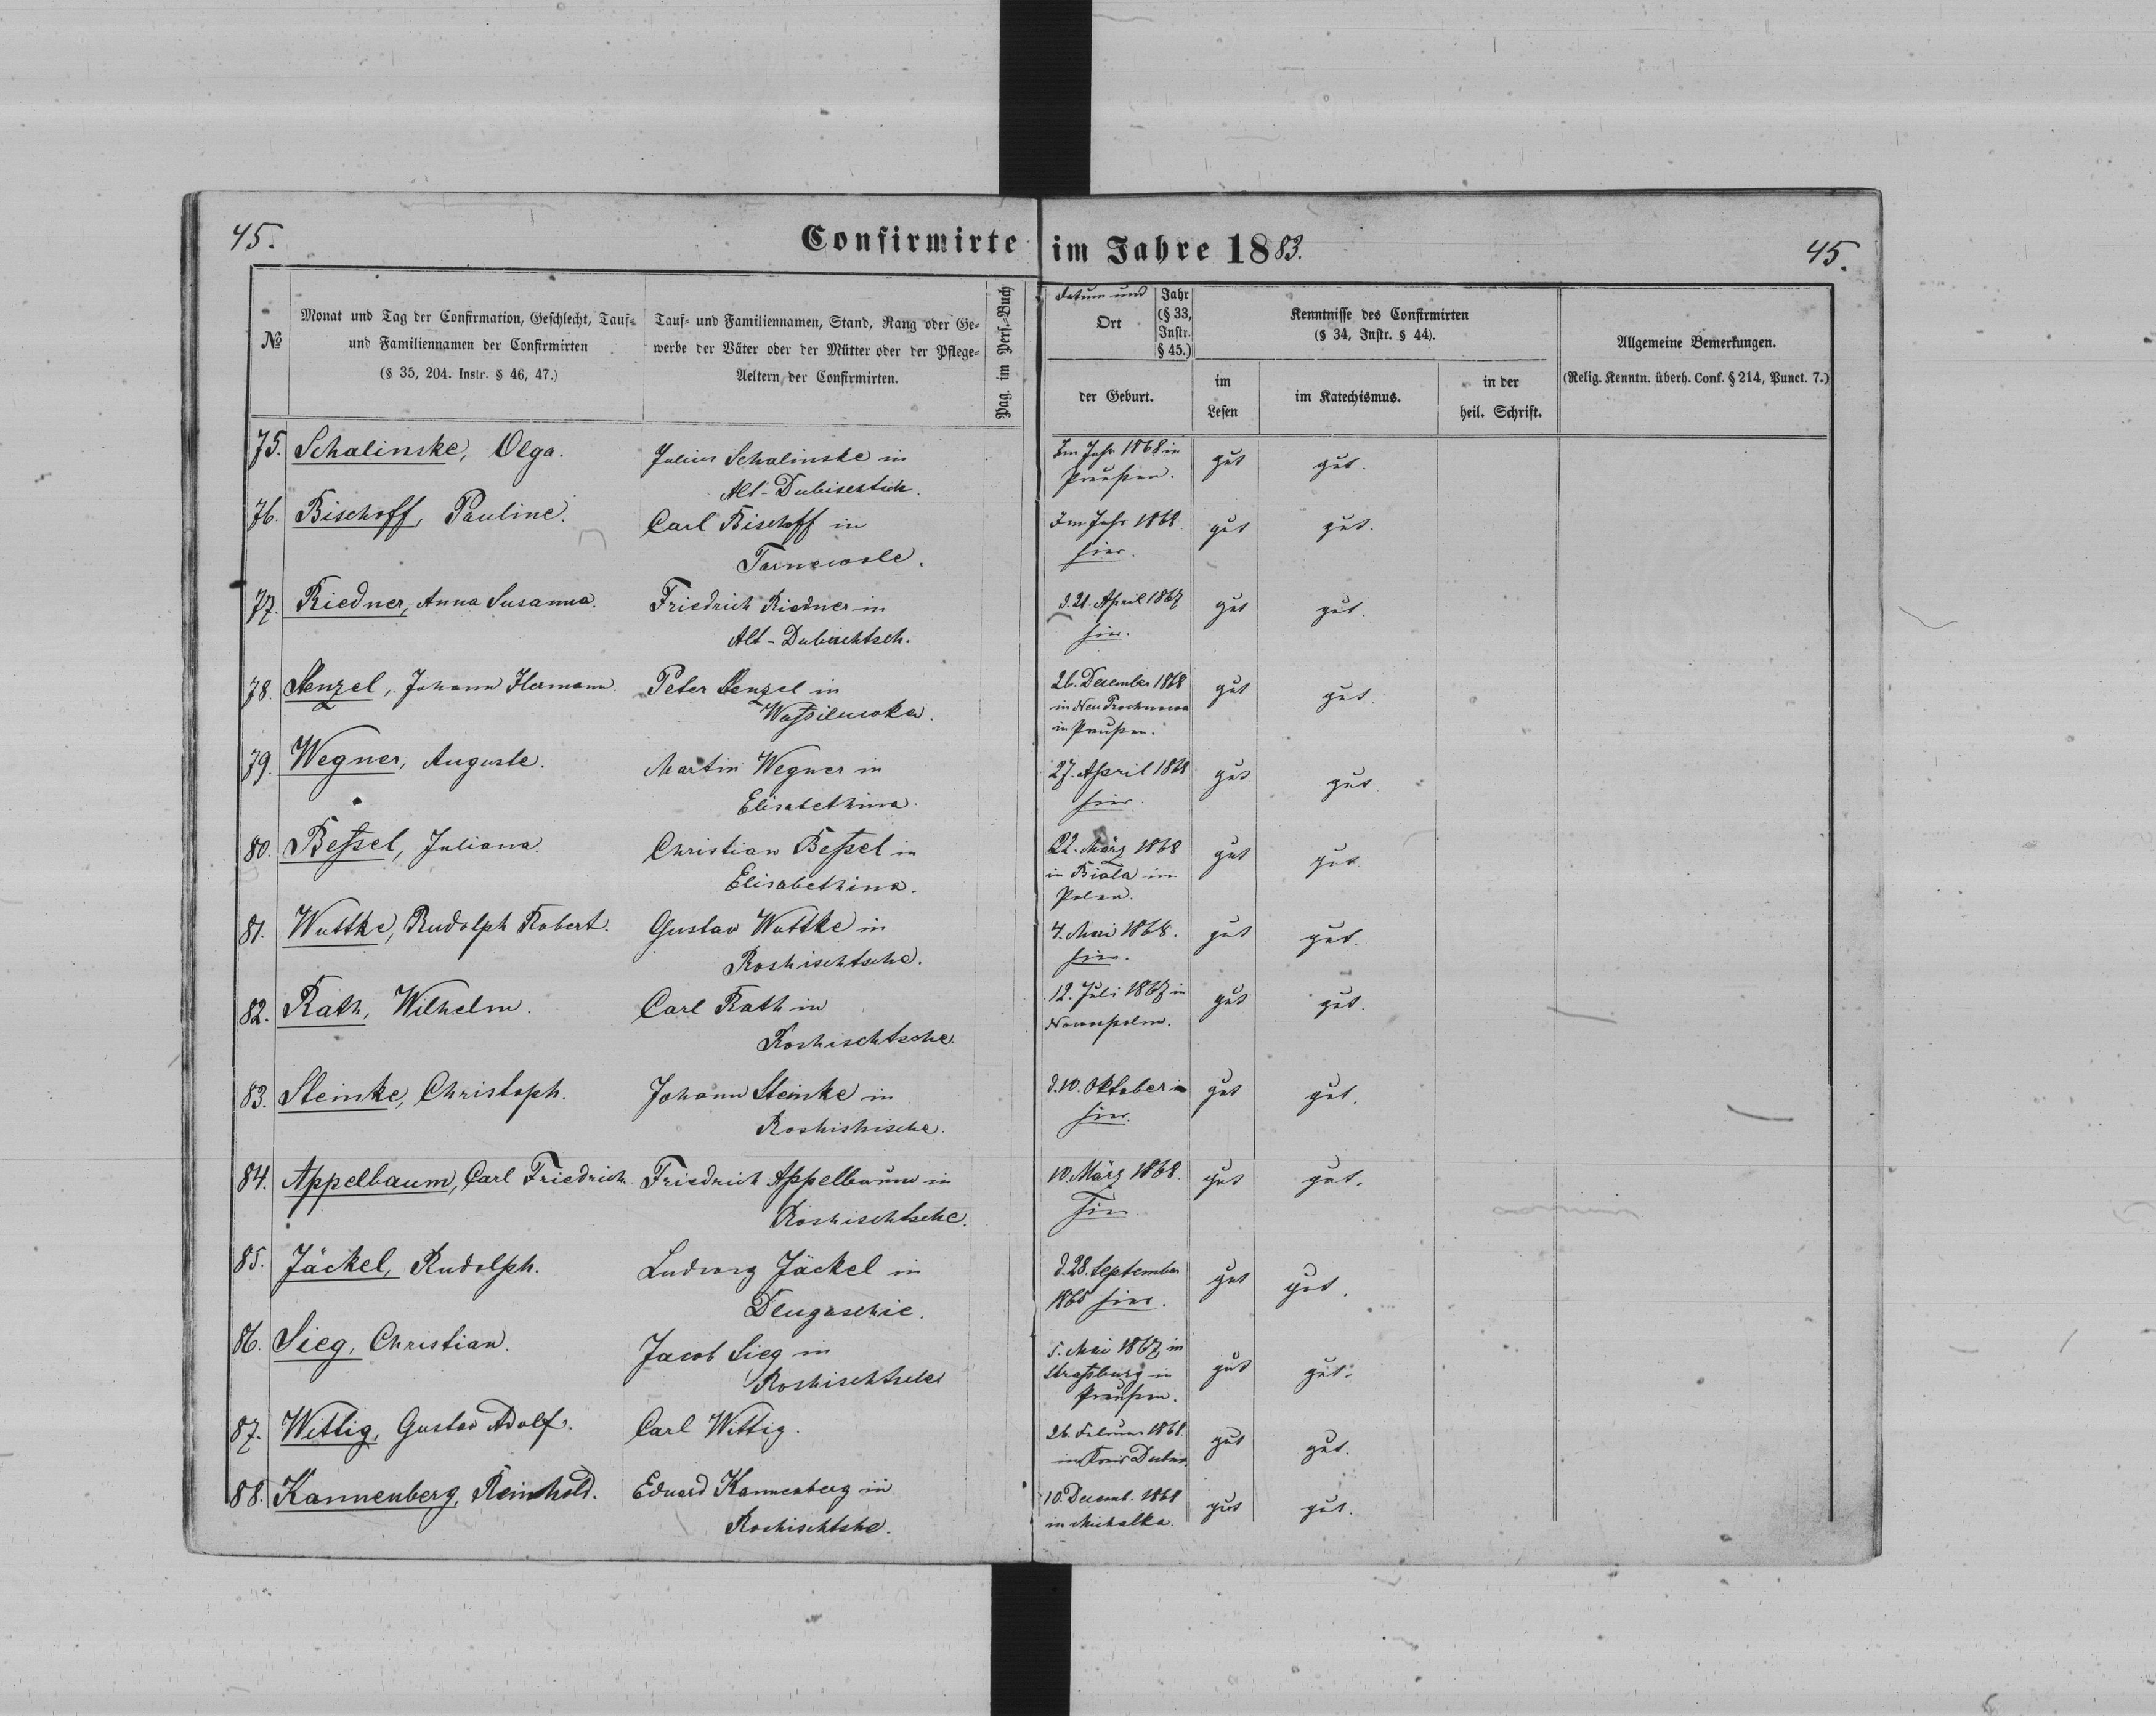 45.
Confirmirte im Jahre 1883.
45.
№
Monat und Tag der Confirmation, Geschlecht, Tauf-
und Familiennamen der Confirmirten
(§ 35, 204. Instr. § 46, 47.)
Tauf- und Familiennamen, Stand, Rang oder Ge-
werbe der Väter oder der Mütter oder der Pflege-
Aeltern der Confirmirten.
Pag. im Pers.-Buch
Datum und
Ort
Jahr
(§ 33,
Instr.
§ 45.)
der Geburt.
Kenntnisse des Confirmirten
(§ 34, Instr. § 44).
im
Lesen
im Katechismus.
in der
heil. Schrift.
Allgemeine Bemerkungen.
(Relig. Kenntn. überh. Conf. § 214, Punct. 7.)
75. Schalinske, Olga. Julius Schalinske in Im Jahr 1868 in gut gut.
Alt-Dubischtsch. Preußen.
76. Bischoff, Pauline. Carl Bischoff in Im Jahr 1868. gut gut.
Tarnewole. hier.
77. Riedner, Anna Susanna. Friedrich Riedner in d. 21. April 1867 gut gut.
Alt-Dubischtsch. hier.
78. Stenzel, Johann Hermann. Peter Stenzel in 26. December 1868 gut gut.
in Neu
in Preußen.
79. Wegner, Auguste. Martin Wegner in 27. April 1868 gut gut.
Elisabethina. hier.
80. Beßel, Juliana. Christian Beßel in 22. März 1868 gut gut
Elisabethina. in Biala in
Polen.
81. Wuttke, Rudolph Robert. Gustav Wuttke in 4. Mai 1868. gut gut.
Roshischtsche. hier.
82. Rath, Wilhelm. Carl Rath in 12. Juli 1867 in gut gut.
Roshischtsche.
83. Steinke, Christoph. Johann Steinke in d. 10. Oktober gut gut.
Roshishische. hier.
84. Appelbaum, Carl Friedrich. Friedrich Appelbaum in 10. März 1868. gut gut.
Roshischtsche. hier
85. Jäckel, Rudolph. Ludwig Jäckel in d. 28. September gut gut.
Dlugaschie. 1865 hier.
86. Sieg, Christian. Jacob Sieg in 5. Mai 1867 in gut gut.
Roshischtsche Straßburg in
Preußen.
87. Wittig, Gustav Adolf. Carl Wittig. 26. Februar 1868. gut gut.
in Kreis Dubno.
88. Kannenberg, Reinhold. Eduard Kannenberg in 10. Decemb. 1868 gut gut.
Roshischtshe. in Michalka.